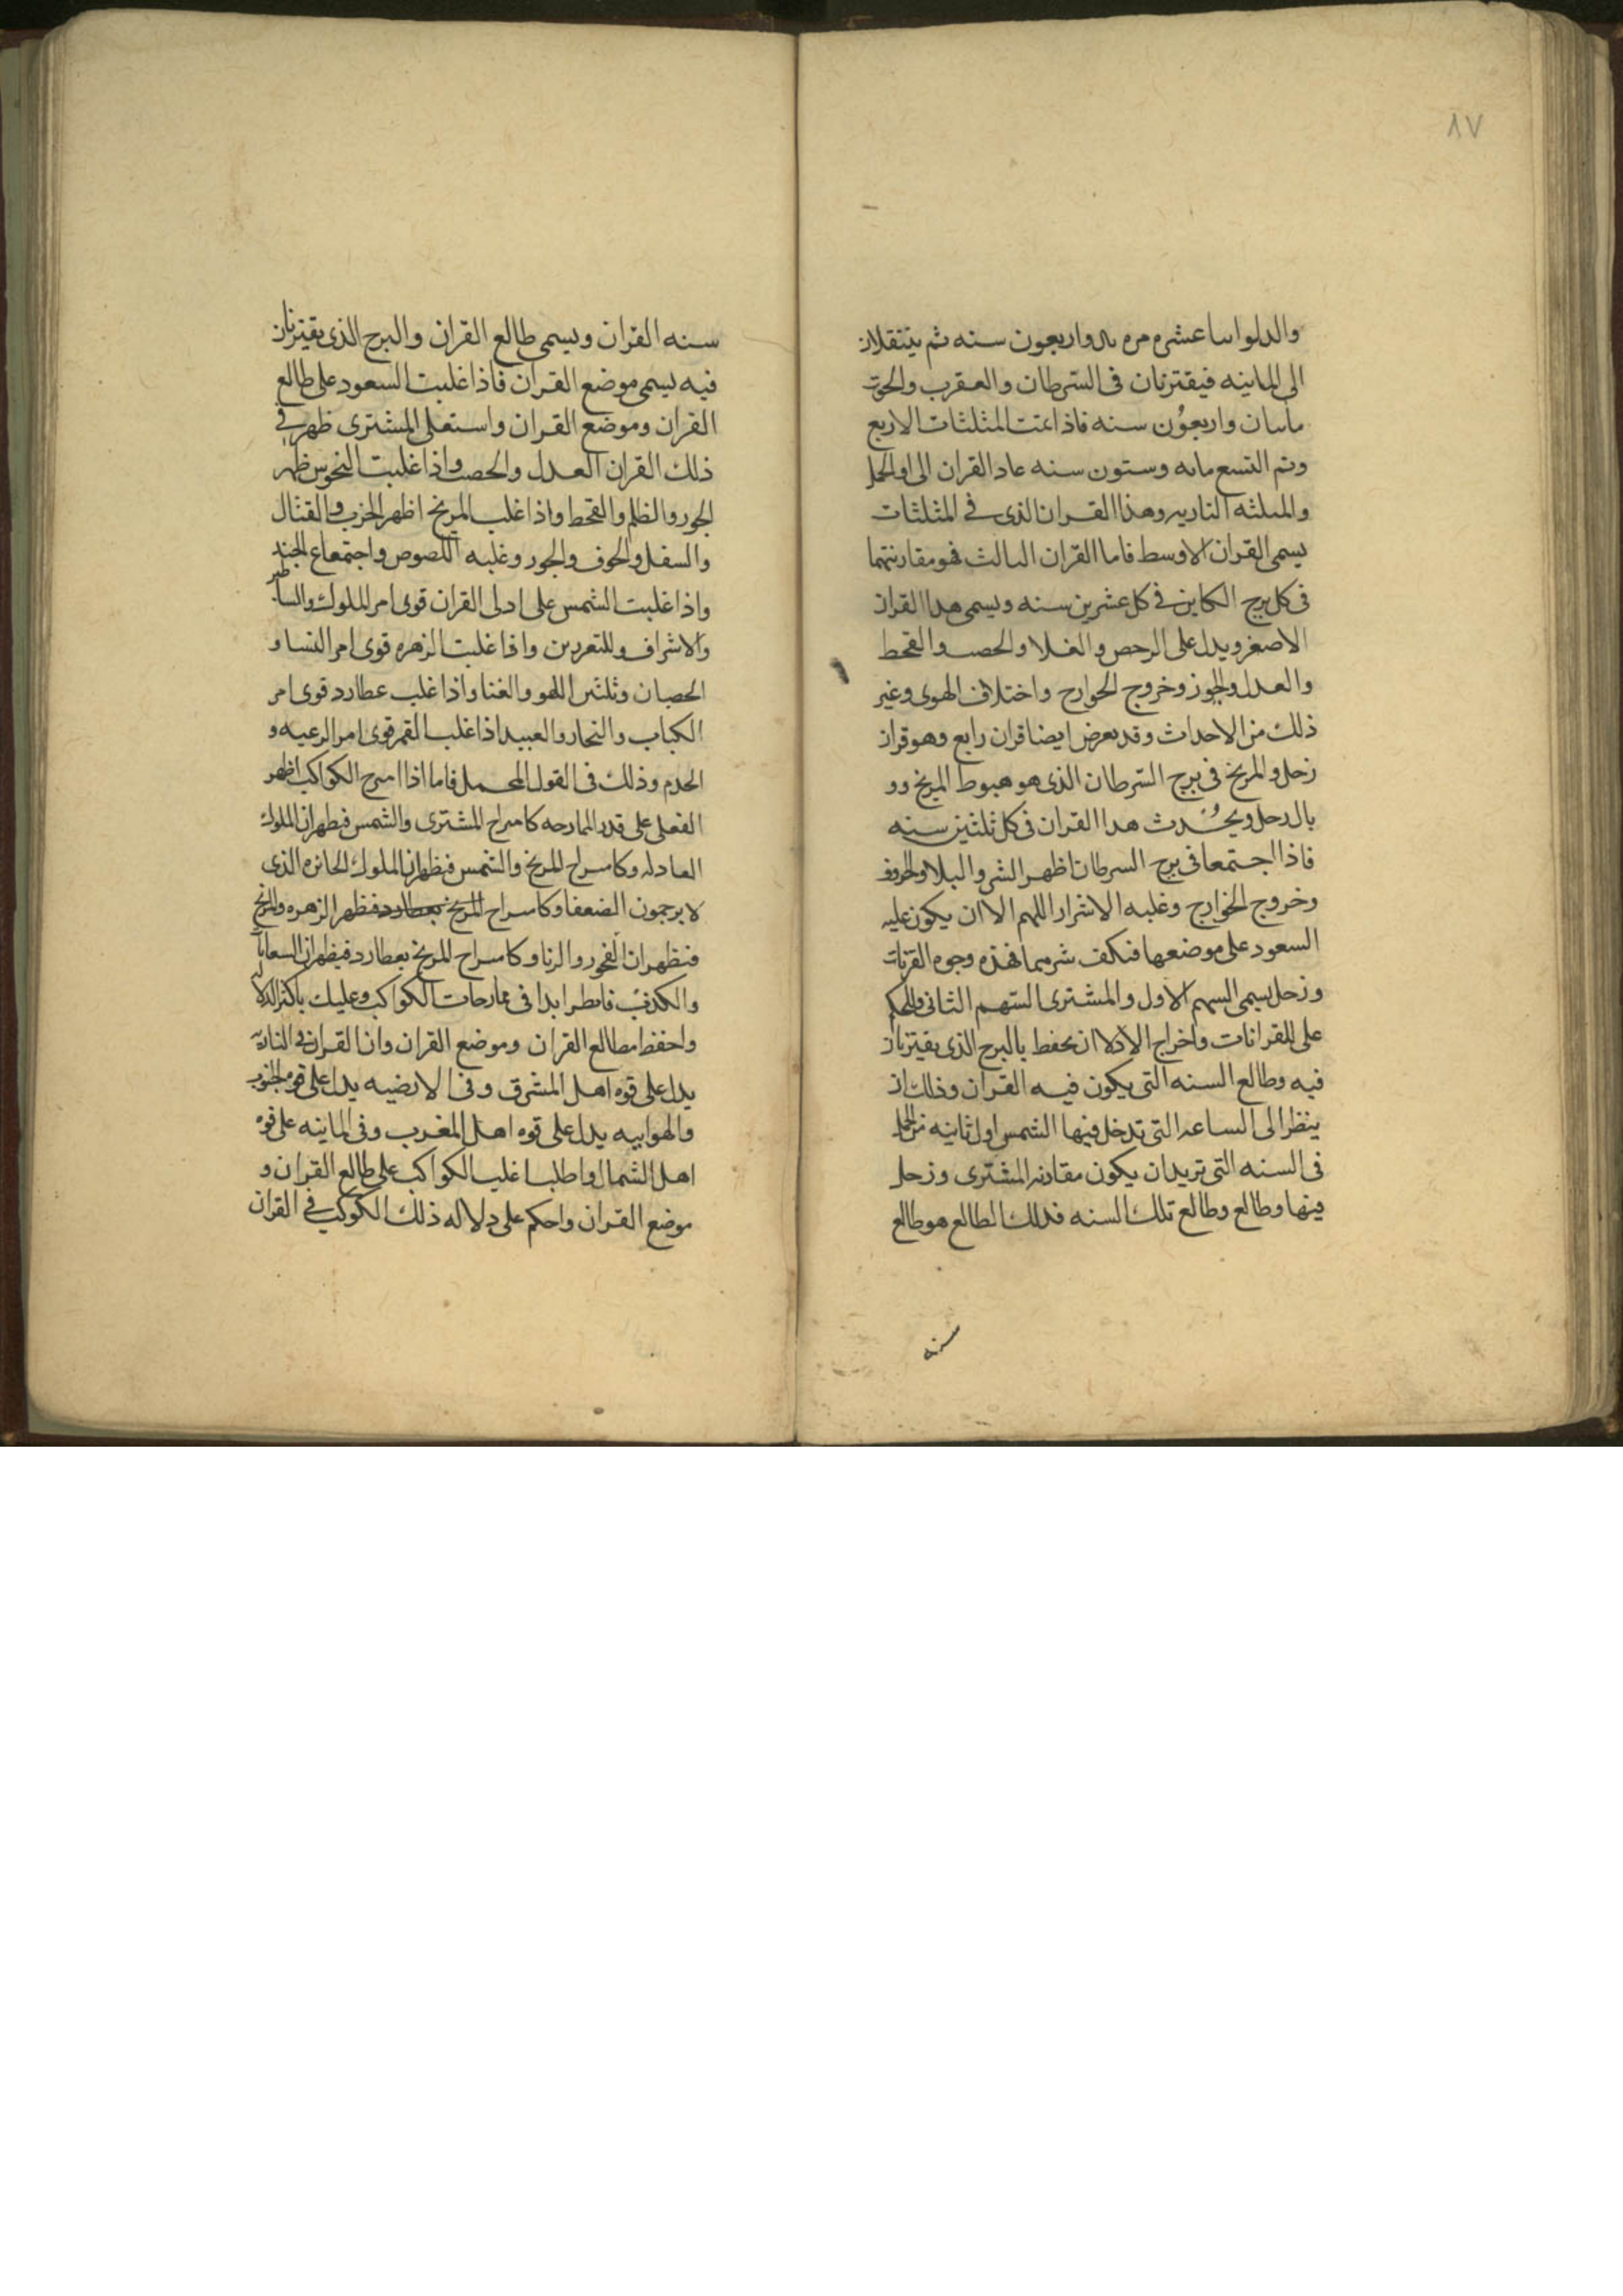 ٨٧
والدلو اسا عشره مره مال واربعون سنه ثم ينتقلان
الى المائيه فيقترنان فى السرطان والعقرب والحوت
ماىىان واربعون سنه فاذا تمت المثلثات الاربع
وتم التسع مايه وستون سنه عاد القران الى اول الحمل
والمثلثه الناريه وهذا القران الذى فى المثلثات
يسمى القران الاوسط فاما القران الثالث فهو مقارنتهما
فى كل برج الكاين فى كل عشرين سنه ويسمى هدا القران
الاصغر ويدل على الرحص والغلا والحصب والقحط
والعدل والجور وخروج الحوارج واختلاف الهوى وغير
ذلك من الاحداث وقد يعرض ايضا قران رابع وهو قران
زحل والمريخ فى برج السرطان الذى هو هبوط المريخ وو
بال زحل ويحدث هدا القران فى كل ثلثين سنه
فاذا اجتمعا فى برج السرطان اظهر الشر والبلا والخوف
وخروج الخوارج وغلبه الاشرار اللهم الا ان يكون عليه
السعود على موضعها فتكف شرهما فهذه وجوه القرنات
وزحل يسمى السهم الاول والمشترى السهم الثانى والحكم
على القرانات واخراج الادلا ان تحفظ بالبرج الذى يقترنان
فيه وطالع السنه التى يكون فيه القران وذلك ان
ينظر الى الساعه التى تدخل فيها الشمس اول ثانيه من الحمل
فى السنه التى تريد ان يكون مقارنه المشترى وزحل
فيها وطالع وطالع تلك السنه فذلك الطالع هو طالع
سنه
سنه القران ويسمى طالع القران والبرج الذى يقترنان
فيه يسمى موضع القران فاذا غلبت السعود على طالع
القران وموضع القران واستعلى المشترى ظهر فى
ذلك القران العدل والحصب واذا غلبت النحوس ظهر
الجور والظلم والقحط واذا غلب المريخ اظهر الحرب والقتال
والسفل والحوف والجور وغلبه اللصوص واجتماع الجند
واذا غلبت الشمس على ادلى القران قوى امر الملوك والساطير
والاشراف وللتعردىن واذا غلبت الزهره قوى امر النسا و
الحصيان وثلثىں اللهو والغنا واذا غلب عطارد قوى امر
الكتاب والتجار والعبيد اذا غلب القمر قوى امر الرعيه و
الحدم وذلك فى القول المجمل فاما اذا امىرج الكواكب اظهر
الفعلى على قدر الممارحه كامىراج المشترى والشمس فيظهران الملوك
العادله وكامىراج المريخ والشمس فيظهران الملوك الجائره الذى
لا يرحمون الضعفا وكامىراج المريخ بعطارد فيظهر الزهره والمريخ
فيظهران الفجور والزنا وكامىراج المريخ بعطارد فيظهران السعايات
والكذب فانظر ابدا فى ممارحات الكواكب وعليك باكثر الدلا
واحفظ مطالع القران وموضع القران وان القران فى الناريه
يدل على قوه اهل المشرق وفى الارضيه يدل على قوه الجنوب
والهوايبه يدل على قوه اهل المغرب وفى المائيه على قوه
اهل الشمال واطلب اغلب الكواكب على طالع القران و
موضع القران واحكم على دلاله ذلك الكوكب فى القران